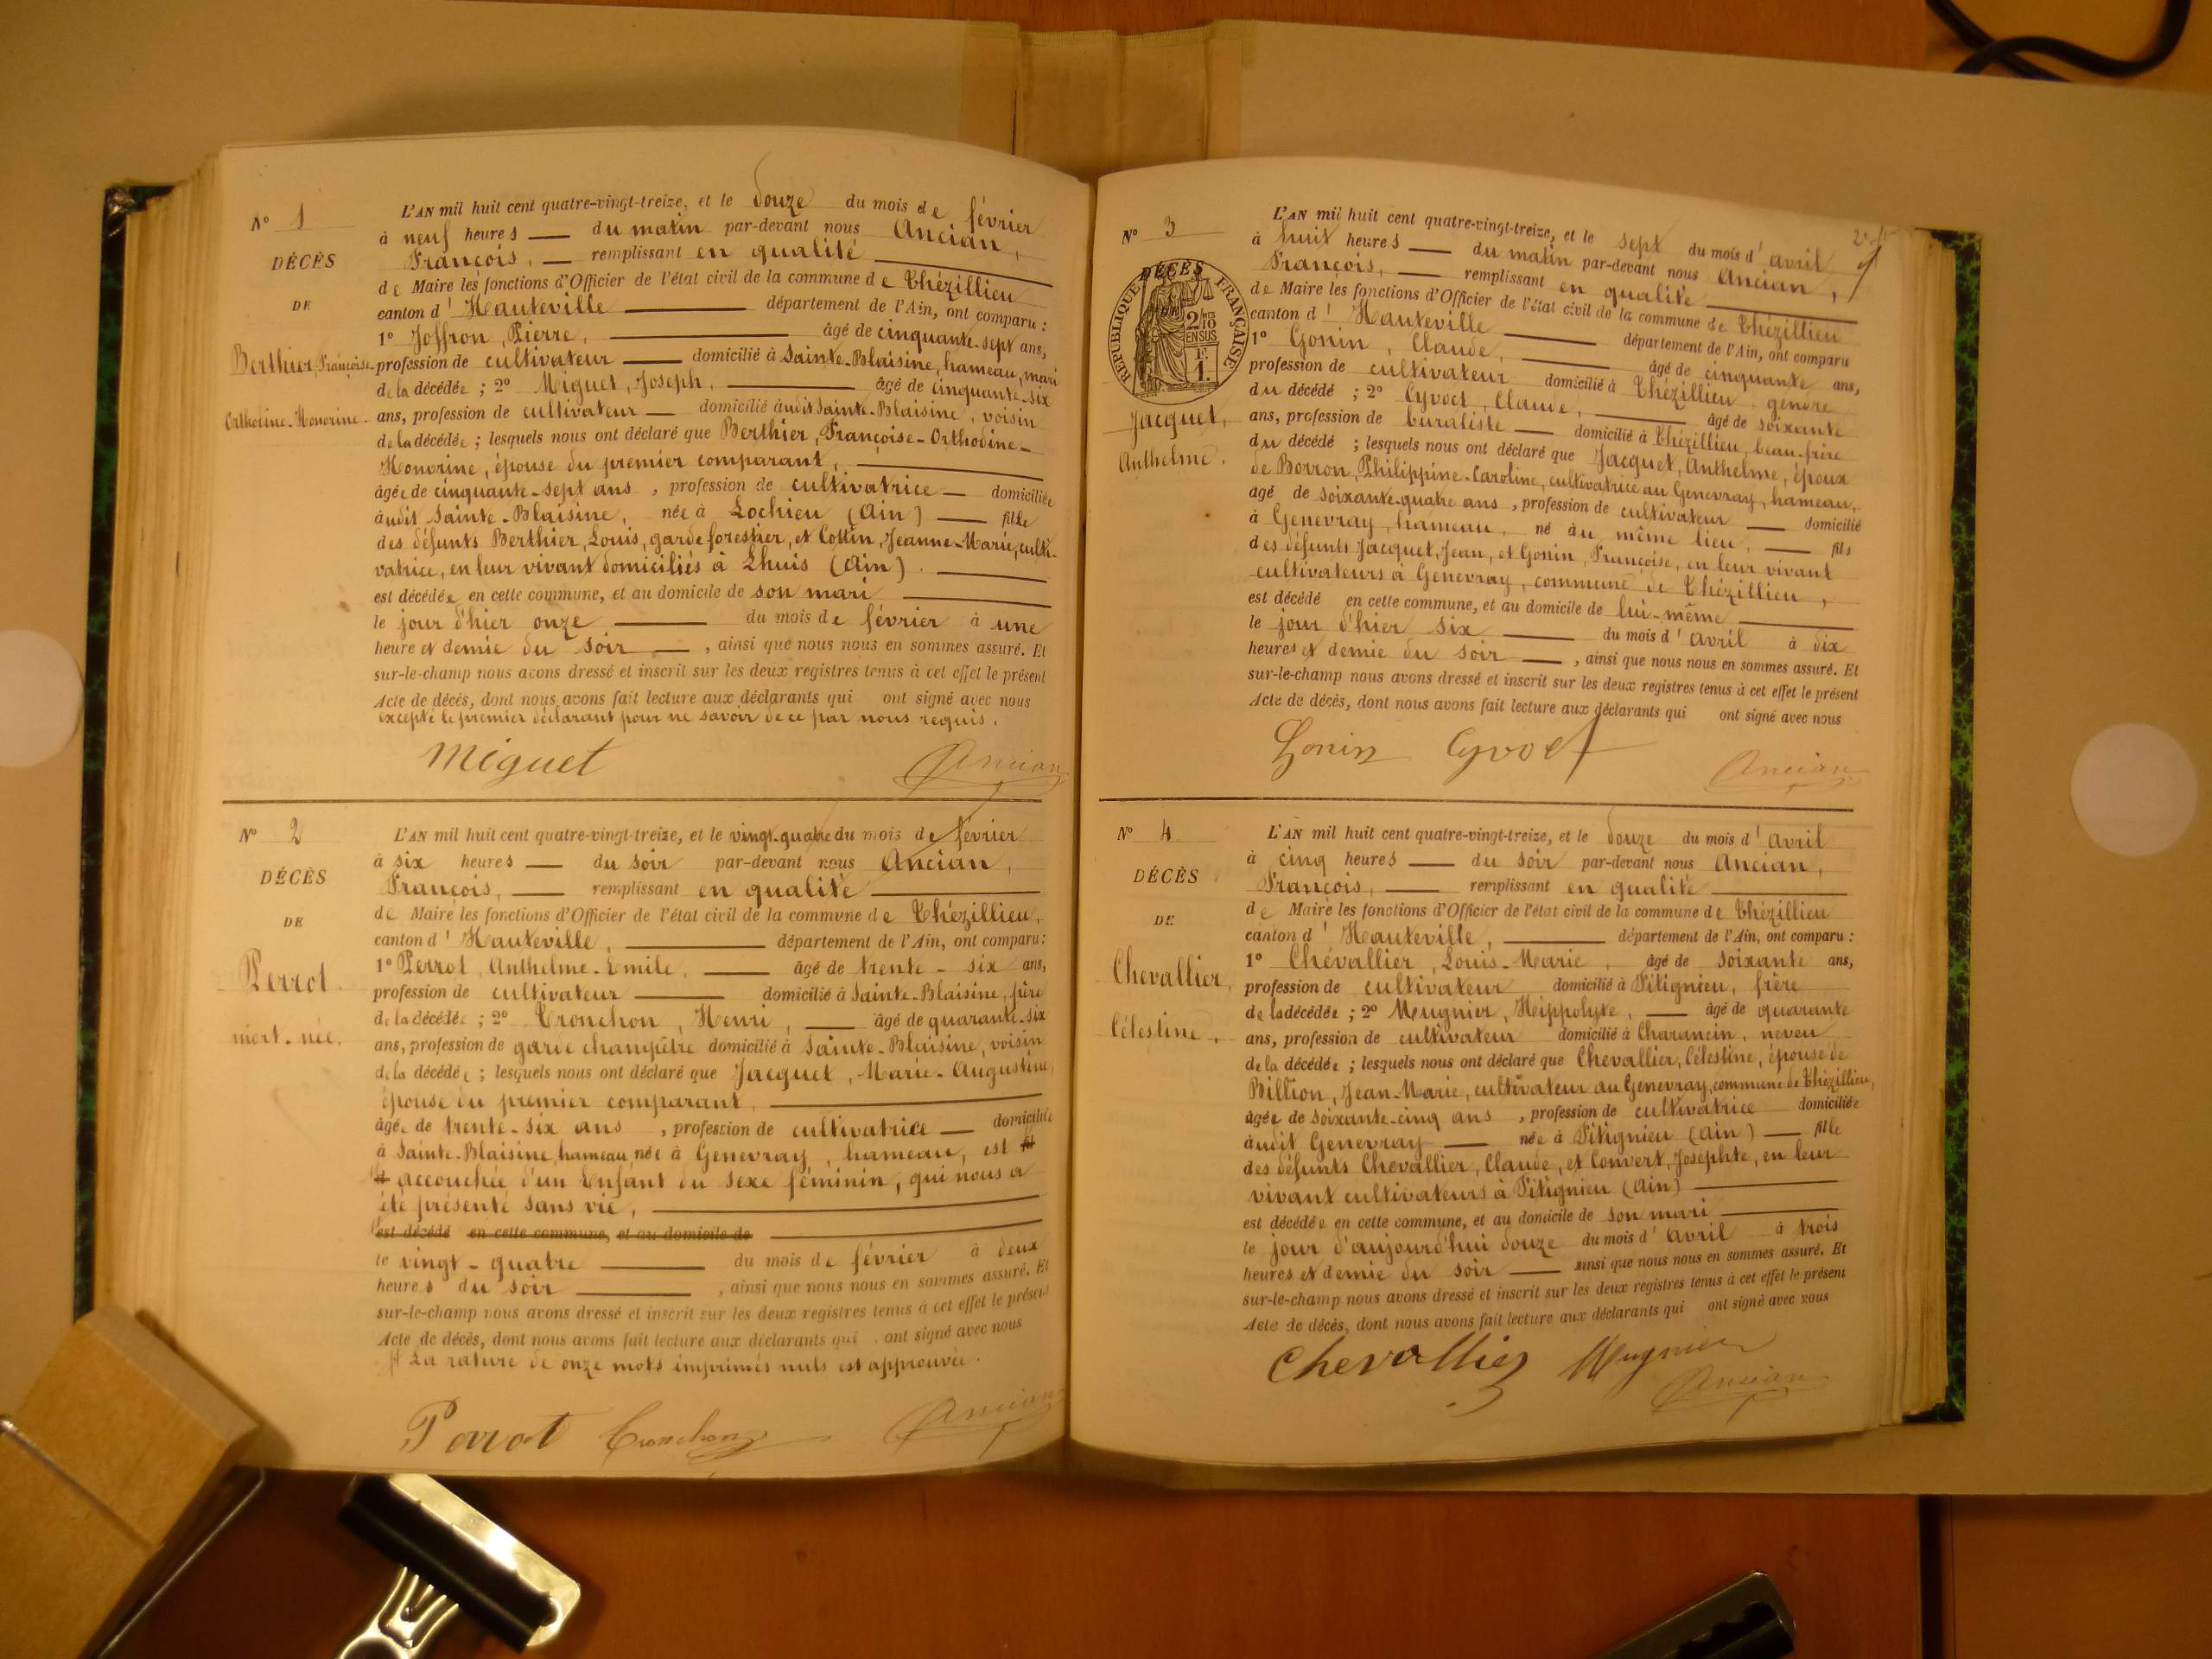 N° 1
DÉCÈS
DE
Berthier, Françoise-
Orthodine-Honorine.
L'AN mil huit cent quatre-vingt-treize, et le douze du mois de février
à neuf heures — du matin par-devant nous Ancian,
François, — remplissant en qualité
de Maire les fonctions d'Officier de l'état civil de la commune de Thézillieu
canton d'Hauteville — département de l'Ain, ont comparu :
1° Joffron, Pierre, — âgé de cinquante-sept ans,
profession de cultivateur — domicilié à Sainte-Blaisine, hameau, mari
de la décédée ; 2° Miguet, Joseph, — âgé de cinquante-six
ans, profession de cultivateur — domicilié audit Sainte-Blaisine, voisin
de la décédée ; lesquels nous ont déclaré que Berthier, Françoise-Orthodine-
Honorine, épouse du premier comparant, —
âgée de cinquante-sept ans, profession de cultivatrice — domiciliée
audit Sainte-Blaisine, née à Lochieu (Ain) — fille
des défunts Berthier, Louis, garde forestier, et Cottin, Jeanne-Marie, culti-
vatrice, en leur vivant domiciliés à Lhuis (Ain). —
est décédée en cette commune, et au domicile de son mari —
le jour d'hier onze — du mois de février à une
heure et demie du soir —, ainsi que nous nous en sommes assuré. Et
sur-le-champ nous avons dressé et inscrit sur les deux registres tenus à cet effet le présent
Acte de décès, dont nous avons fait lecture aux déclarants qui ont signé avec nous
excepté le premier déclarant pour ne savoir de ce par nous requis.
Miguet Ancian
N° 2
DÉCÈS
DE
Perrot
mort-née.
L'AN mil huit cent quatre-vingt-treize, et le vingt-quatre du mois de février
à six heures — du soir par-devant nous Ancian,
François, — remplissant en qualité —
de Maire les fonctions d'Officier de l'état civil de la commune de Thézillieu,
canton d'Hauteville, — département de l'Ain, ont comparu :
1° Perrot, Anthelme-Emile, — âgé de trente-six ans,
profession de cultivateur — domicilié à Sainte-Blaisine, père
de la décédée ; 2° Tronchon, Henri, — âgé de quarante-six
ans, profession de garde champêtre domicilié à Sainte-Blaisine, voisin
de la décédée ; lesquels nous ont déclaré que Jacquet, Marie-Augustine,
épouse du premier comparant, —
âgée de trente-six ans, profession de cultivatrice — domiciliée
à Sainte-Blaisine, hameau née à Genevray, hameau, est fil
accouchée d'un Enfant du sexe féminin, qui nous a
été présenté sans vie, —
est décédé en cette commune, et au domicile de —
le vingt-quatre — du mois de février à deux
heures du soir —, ainsi que nous nous en sommes assuré. Et
sur-le-champ nous avons dressé et inscrit sur les deux registres tenus à cet effet le présent
Acte de décès, dont nous avons fait lecture aux déclarants qui ont signé avec nous
La rature de onze mots imprimés nuls est approuvée.
Perrot Tronchon Ancian
N° 3
DÉCÈS
RÉPUBLIQUE FRANÇAISE
2/10 EN SUS
F.
1.
Jacquet,
Anthelme.
L'AN mil huit cent quatre-vingt-treize, et le sept du mois d'avril
à huit heures — du matin par-devant nous Ancian,
François, — remplissant en qualité —
de Maire les fonctions d'Officier de l'état civil de la commune de Thézillieu
canton d'Hauteville — département de l'Ain, ont comparu
1° Gonin, Claude, — âgé de cinquante ans,
profession de cultivateur domicilié à Thézillieu, gendre
du décédé ; 2° Cyvoct, Claude, — âgé de soixante
ans, profession de buraliste — domicilié à Thézillieu, beau-frère
du décédé ; lesquels nous ont déclaré que Jacquet, Anthelme, époux
de Borron, Philippine-Caroline, cultivatrice au Genevray, hameau,
âgé de soixante-quatre ans, profession de cultivateur — domicilié
à Genevray, hameau, né au même lieu, — fils
des défunts Jacquet, Jean, et Gonin, Françoise, en leur vivant
cultivateurs à Genevray, commune de Thézillieu,
est décédé en cette commune, et au domicile de lui-même —
le jour d'hier six — du mois d'avril à dix
heures et demie du soir —, ainsi que nous nous en sommes assuré. Et
sur-le-champ nous avons dressé et inscrit sur les deux registres tenus à cet effet le présent
Acte de décès, dont nous avons fait lecture aux déclarants qui ont signé avec nous
Gonin Cyvoct Ancian
N° 4
DÉCÈS
DE
Chevallier,
Célestine,
L'AN mil huit cent quatre-vingt-treize, et le douze du mois d'avril
à cinq heures — du soir par-devant nous Ancian,
François, — remplissant en qualité —
de Maire les fonctions d'Officier de l'état civil de la commune de Thézillieu
canton d'Hauteville, — département de l'Ain, ont comparu :
1° Chevallier, Louis-Marie, âgé de soixante ans,
profession de cultivateur domicilié à Pitignieu, frère
de la décédée ; 2° Mugnier, Hippolyte, — âgé de quarante
ans, profession de cultivateur domicilié à Charancin, neveu
de la décédée ; lesquels nous ont déclaré que Chevallier, Célestine, épouse de
Billion, Jean-Marie, cultivateur au Genevray, commune de Thézillieu,
âgée de soixante-cinq ans, profession de cultivatrice domiciliée
audit Genevray — née à Pitignieu (Ain) — fille
des défunts Chevallier, Claude, et Convert, Josephte, en leur
vivant cultivateurs à Pitignieu (Ain) —
est décédée en cette commune, et au domicile de son mari —
le jour d'aujourd'hui douze du mois d'avril à trois
heures et demie du soir — ainsi que nous nous en sommes assuré. Et
sur-le-champ nous avons dressé et inscrit sur les deux registres tenus à cet effet le présent
Acte de décès, dont nous avons fait lecture aux déclarants qui ont signé avec nous
Chevallier Mugnier Ancian